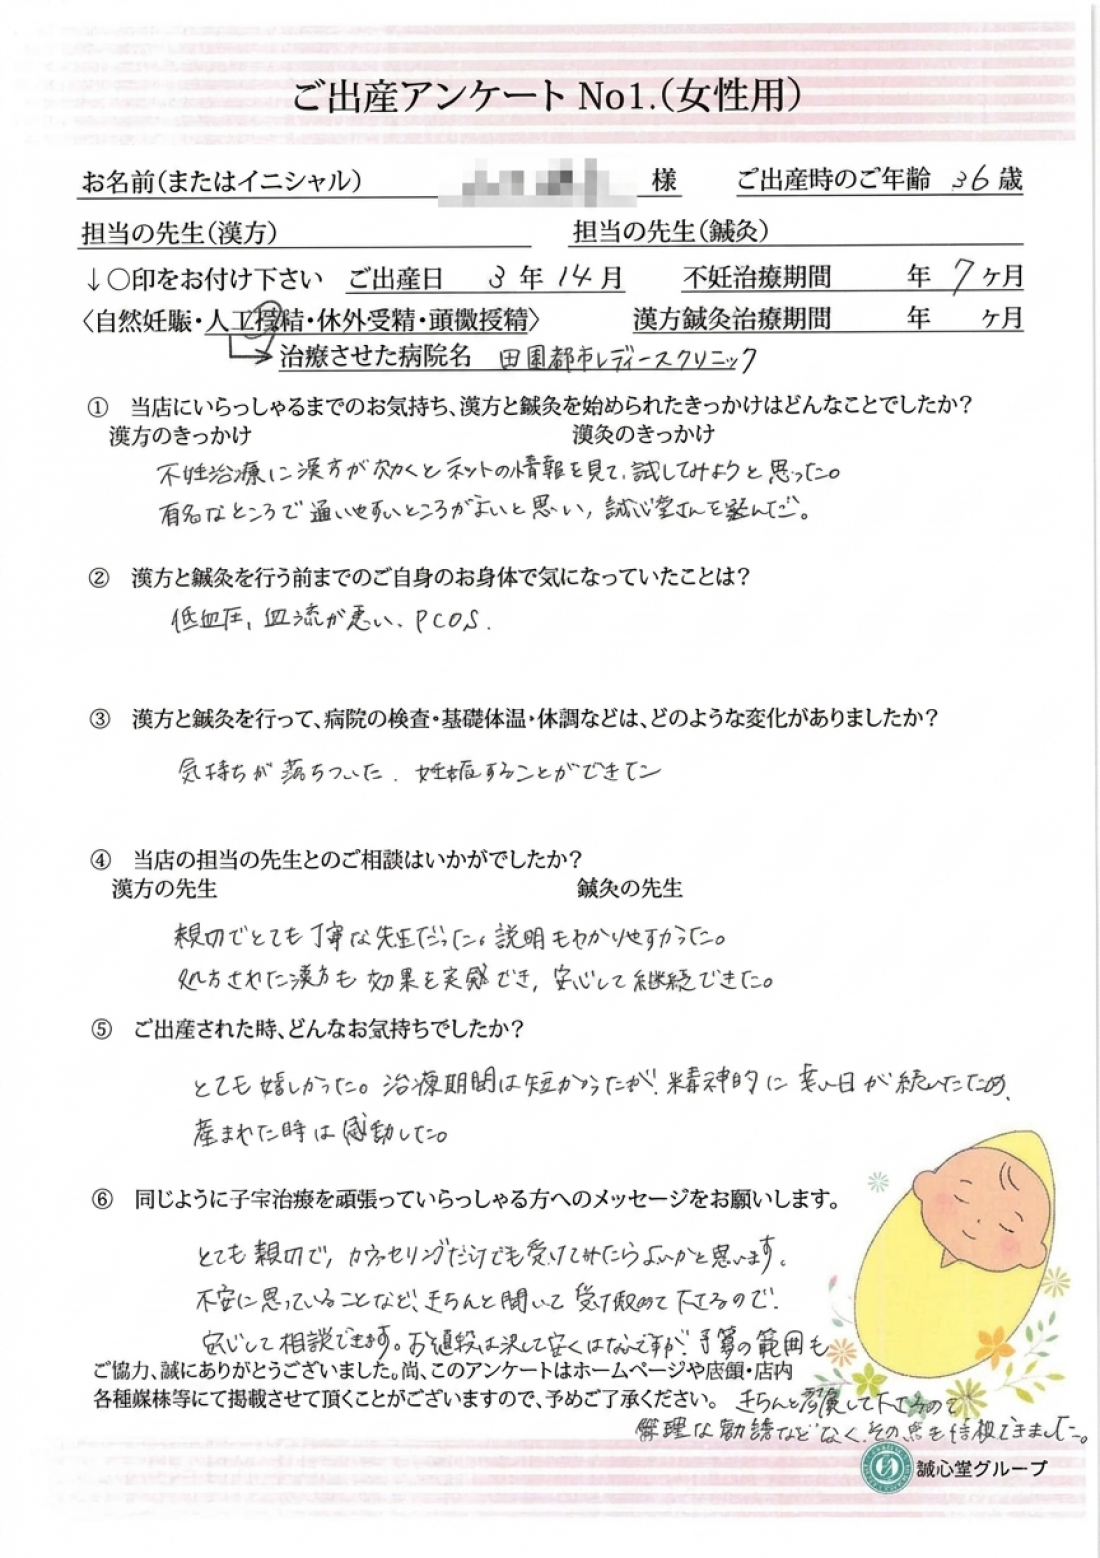 ご出産アンケート No1.(女性用)
お名前(またはイニシャル) 様 ご出産時のご年齢 36歳
担当の先生(漢方) 担当の先生(鍼灸)
↓○印をお付け下さい ご出産日 3年14月 不妊治療期間 年7ヶ月
〈自然妊娠・人工授精・体外受精・顕微授精〉 漢方鍼灸治療期間 年 ヶ月
治療させた病院名 田園都市レディースクリニック
① 当店にいらっしゃるまでのお気持ち、漢方と鍼灸を始められたきっかけはどんなことでしたか?
漢方のきっかけ 漢灸のきっかけ
不妊治療に漢方が効くとネットの情報を見て、試してみようと思った。
有名なところで通いやすいところがよいと思い、誠心堂さんを選んだ。
② 漢方と鍼灸を行う前までのご自身のお身体で気になっていたことは?
低血圧、血流が悪い、PCOS.
③ 漢方と鍼灸を行って、病院の検査・基礎体温・体調などは、どのような変化がありましたか?
気持ちが落ちついた. 妊娠することができた
④ 当店の担当の先生とのご相談はいかがでしたか?
漢方の先生 鍼灸の先生
親切でとても丁寧な先生だった。説明もわかりやすかった。
処方された漢方も効果を実感でき,安心して継続できた。
⑤ ご出産された時、どんなお気持ちでしたか?
とても嬉しかった。治療期間は短かかったが、精神的に辛い日が続いたため、
産まれた時は感動した。
⑥ 同じように子宝治療を頑張っていらっしゃる方へのメッセージをお願いします。
とても親切で,カウンセリングだけでも受けてみたらよいかと思います。
不安に思っていることなど、きちんと聞いて受け取めて下さるので、
安心して相談できます。お値段は決して安くはないですが、予算の範囲も
ご協力、誠にありがとうございました。尚、このアンケートはホームページや店頭・店内
各種媒体等にて掲載させて頂くことがございますので、予めご了承ください。 きちんと考慮して下さるので
無理な勧誘などなく、その点も信頼できました。
誠心堂グループ